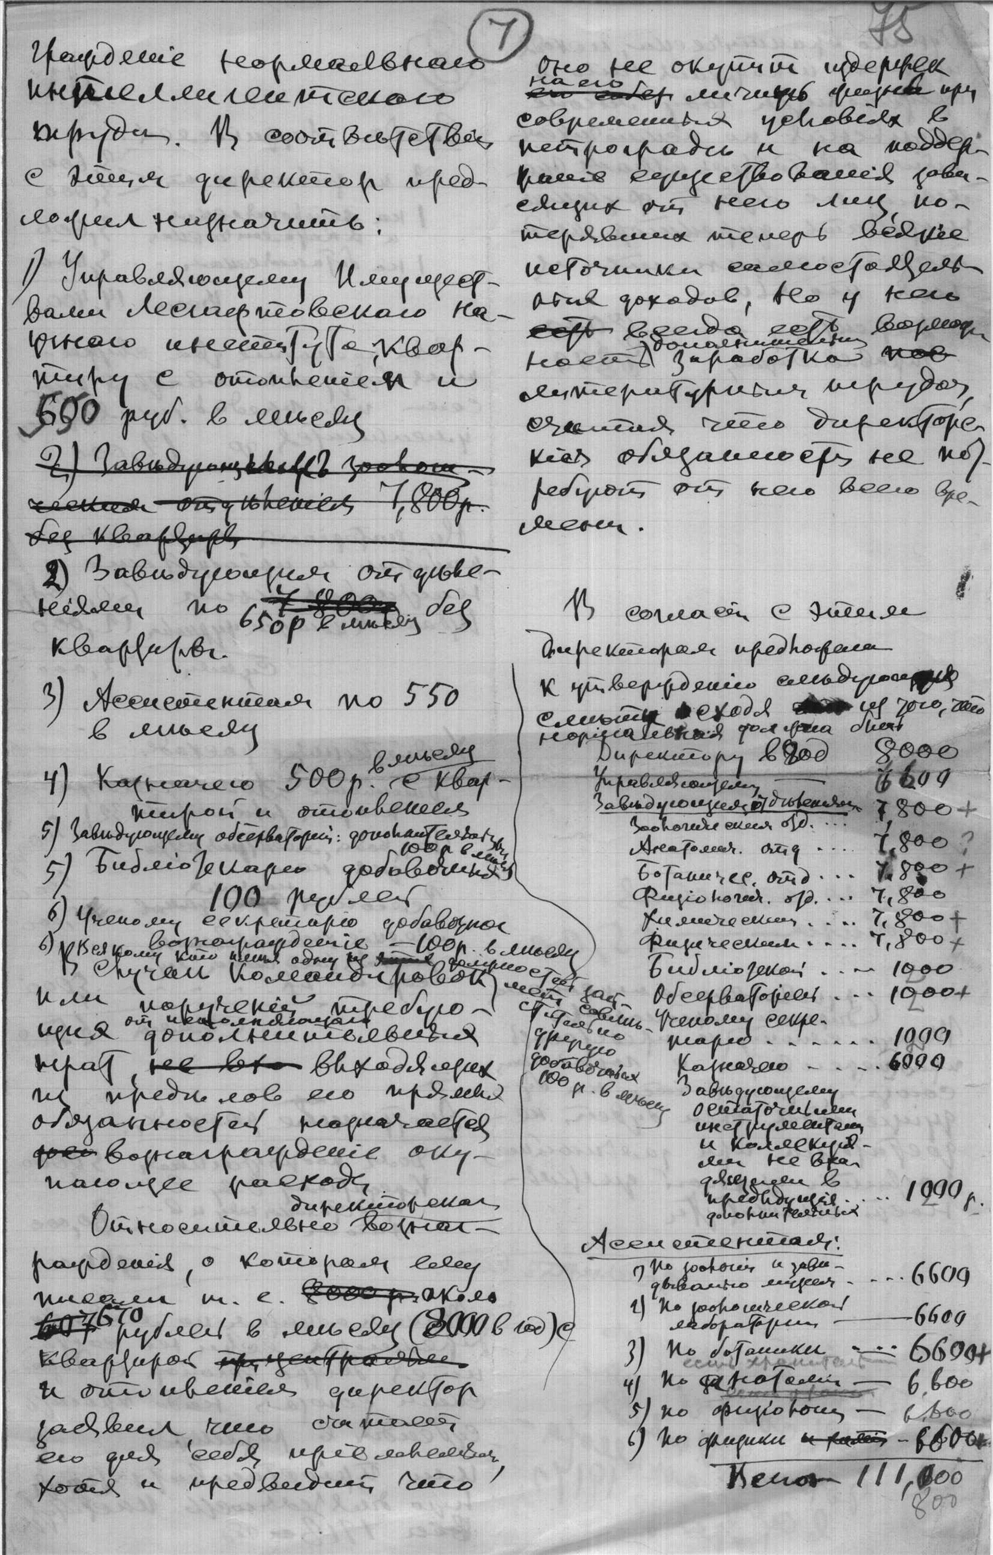 7
75
граждение нормальнаго
интеллигентскаго
труда. В соответствіи
с этим директор пред-
ложил назначить:
1) Управляющему Имущест-
вами Лесгафтовскаго На-
учнаго института, квар-
тиру с отопленіем и
550 руб. в месяц
2) Заведующему зоологи-
ческим отделеніем 7,800р.
без квартиры
2) Заведующим отделе-
ніями по 7800р без
650р в месяц
квартиры.
3) Ассистентам по 550
в месяц
4) Казначею 500р. в месяц с квар-
тирой и отопленіем
5) Заведующему обсерваторіи: дополнительных
100р в месяц
5) Библіотекарю добавочных
100 рублей
6) Ученому секретарю добавочное
вознагражденіе — 100р. в месяц
В случаи командировок
или порученій требую-
щих от исполняющаго дополнительных
трат, выходящих
из пределов его прямых
обязанностей назначается
вознагражденіе оку-
пающее расходы
Относительно директорскаго вознаг-
ражденія, о котором ему
писали т. е. 8000 р. около
670 рублей в месяц (8000 в год) с
квартирой
и отопленіем директор
заявил, что считает
его для себя пріемлемым,
хотя и предвидит что
оно не окупит издержек
на его личную жизнь при
современных условіях в
Петрограде и на поддер-
жаніе существованія зави-
сящих от него лиц, по-
терявших теперь всякіе
источники самостоятель-
ных доходов, но у него
есть всегда есть возмож-
ность дополнительнаго заработка
литературным трудом,
считая что директорс-
кія обязанности не пот-
ребуют от него всего вре-
мени.
В согласіи с этим
директором предложена
к утвержденію следующая
смета исходя из того, что
нормальная должна быть
Директору в год 8000
Управляющему — 6600
Заведующим отделеніями 7,800+
Зоологическим отд. ...
Анатомич. отд .... 7,800?
Ботаничес. отд ... 7,800+
Физіологич. отд. ... 7,800
Химическим .... 7,800+
Физическим .... 7,800+
Библіотекой .... 1000
Обсерваторіей ... 1200+
Ученому секре-
тарю ...... 1200
Казначею .... 6000
Заведующему
остаточными
инструментами
и коллекція-
ми не вхо-
дящими в
предыдущія .... 1200 р.
дополнительных
Ассистентам:
1) по зоологіи и заве-
дыванію музея .... 6600
2) по зоологической
лабораторіи — 6600
3) По ботанике .... 6600+
4) По анатоміи — 6,600
5) по физіологіи — 6,600
6) по физике и химіи - 6600+
Всего 111,000
800